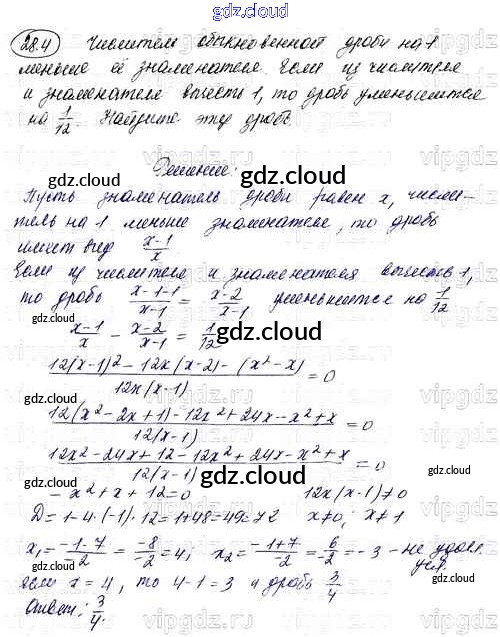 gdz.cloud
28.4 Числитель обыкновенной дроби на 1
меньше её знаменателя. Если из числителя
и знаменателя вычесть 1, то дробь уменьшится
на 1/12. Найдите эту дробь.
Решение:
gdz.cloud
Пусть знаменатель дроби равен x, числи-
тель на 1 меньше знаменателя, то дробь
имеет вид (x-1)/x
gdz.cloud
Если из числителя и знаменателя вычесть 1,
то дробь (x-1-1)/(x-1) = (x-2)/(x-1) уменьшится на 1/12
gdz.cloud
(x-1)/x - (x-2)/(x-1) = 1/12
gdz.cloud
(12(x-1)² - 12x(x-2) - (x² - x))/(12x(x-1)) = 0
gdz.cloud
(12(x² - 2x + 1) - 12x² + 24x - x² + x)/(12(x-1)) = 0
gdz.cloud
(12x² - 24x + 12 - 12x² + 24x - x² + x)/(12(x-1)) = 0
gdz.cloud
- x² + x + 12 = 0 12x(x-1) ≠ 0
D = 1 - 4·(-1)·12 = 1 + 48 = 49 = 7² x ≠ 0; x ≠ 1
gdz.cloud
x₁ = (-1-7)/-2 = -8/-2 = 4; x₂ = (-1+7)/-2 = 6/-2 = -3 - не удов.
усл.
если x = 4, то 4-1 = 3 и дробь 3/4
gdz.cloud
Ответ: 3/4.
gdz.cloud